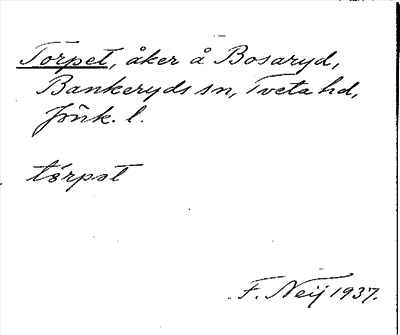 Torpet, åker å Bosaryd,
Bankeryds sn, Tveta hd,
Jönk. l.
tórpət
F. Neij 1937.